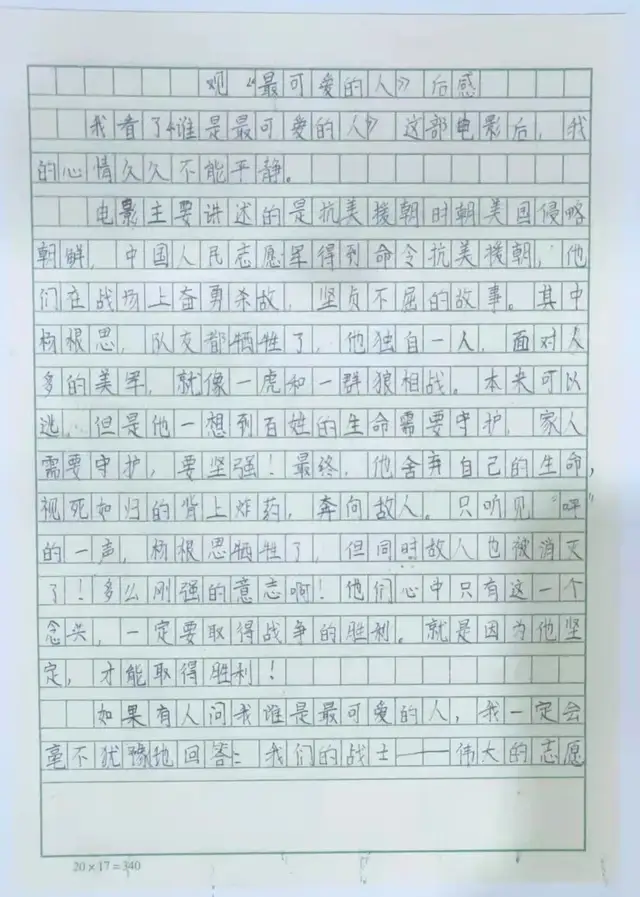 观《最可爱的人》后感
我看了《谁是最可爱的人》这部电影后，我
的心情久久不能平静。
电影主要讲述的是抗美援朝时期美国侵略
朝鲜，中国人民志愿军得到命令抗美援朝，他
们在战场上奋勇杀敌，坚贞不屈的故事。其中
杨根思，队友都牺牲了，他独自一人，面对人
多的美军，就像一虎和一群狼相战。本来可以
逃，但是他一想到百姓的生命需要守护，家人
需要守护，要坚强！最终，他舍弃自己的生命，
视死如归的背上炸药，奔向敌人。只听见“呯”
的一声，杨根思牺牲了，但同时敌人也被消灭
了！多么刚强的意志啊！他们心中只有这一个
念头，一定要取得战争的胜利。就是因为他坚
定，才能取得胜利！
如果有人问我谁是最可爱的人，我一定会
毫不犹豫地回答：我们的战士——伟大的志愿
20×17=340